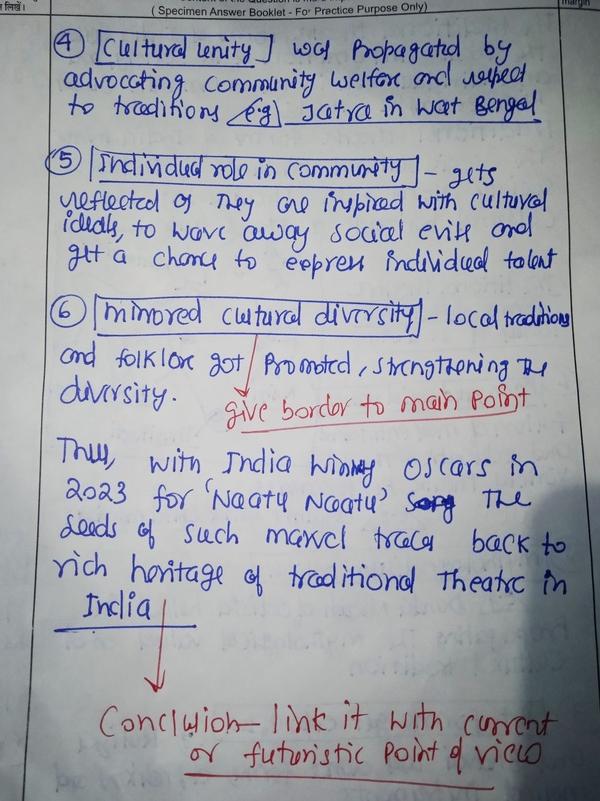 लिखें।
( Specimen Answer Booklet - For Practice Purpose Only)
margin
④ Cultural unity was propagated by
advocating community welfare and respect
to traditions eg) Jatra in West Bengal
⑤ Individual role in community - gets
reflected as they are inspired with cultural
ideals, to wave away social evils and
get a chance to express individual talent
⑥ mirrored cultural diversity - local traditions
and folklore got promoted, strengthening the
diversity.
give border to main point
Thus, with India winning Oscars in
2023 for 'Naatu Naatu' song the
seeds of such marvel traces back to
rich heritage of traditional theatre in
India
Conclusion - link it with current
or futuristic point of view